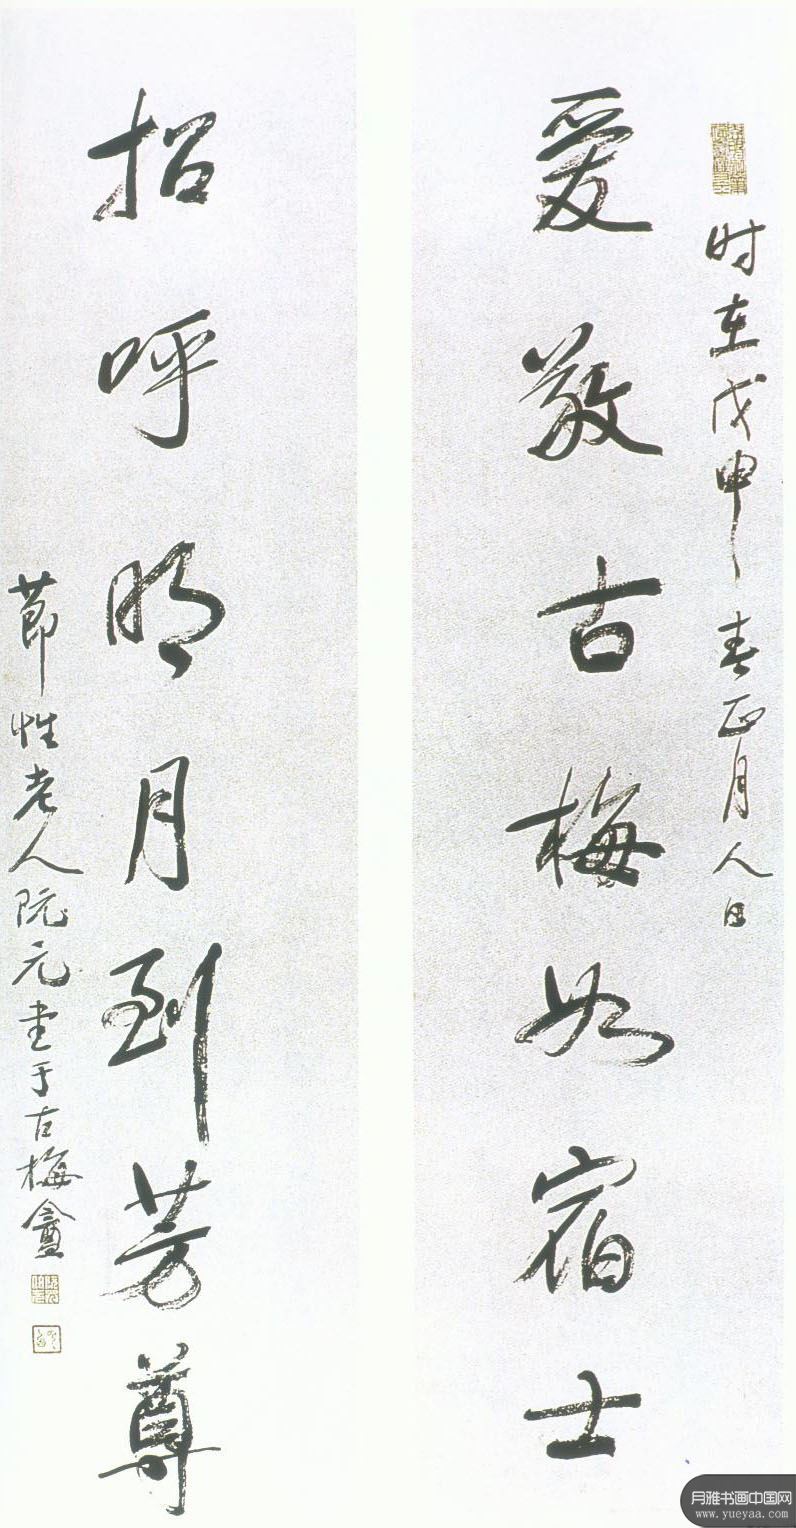 时在戊申春正月人日
爱敬古梅如宿士
招呼明月到芳尊
节性老人阮元书于古梅盦
月雅书画中国网
www.yueyaa.com